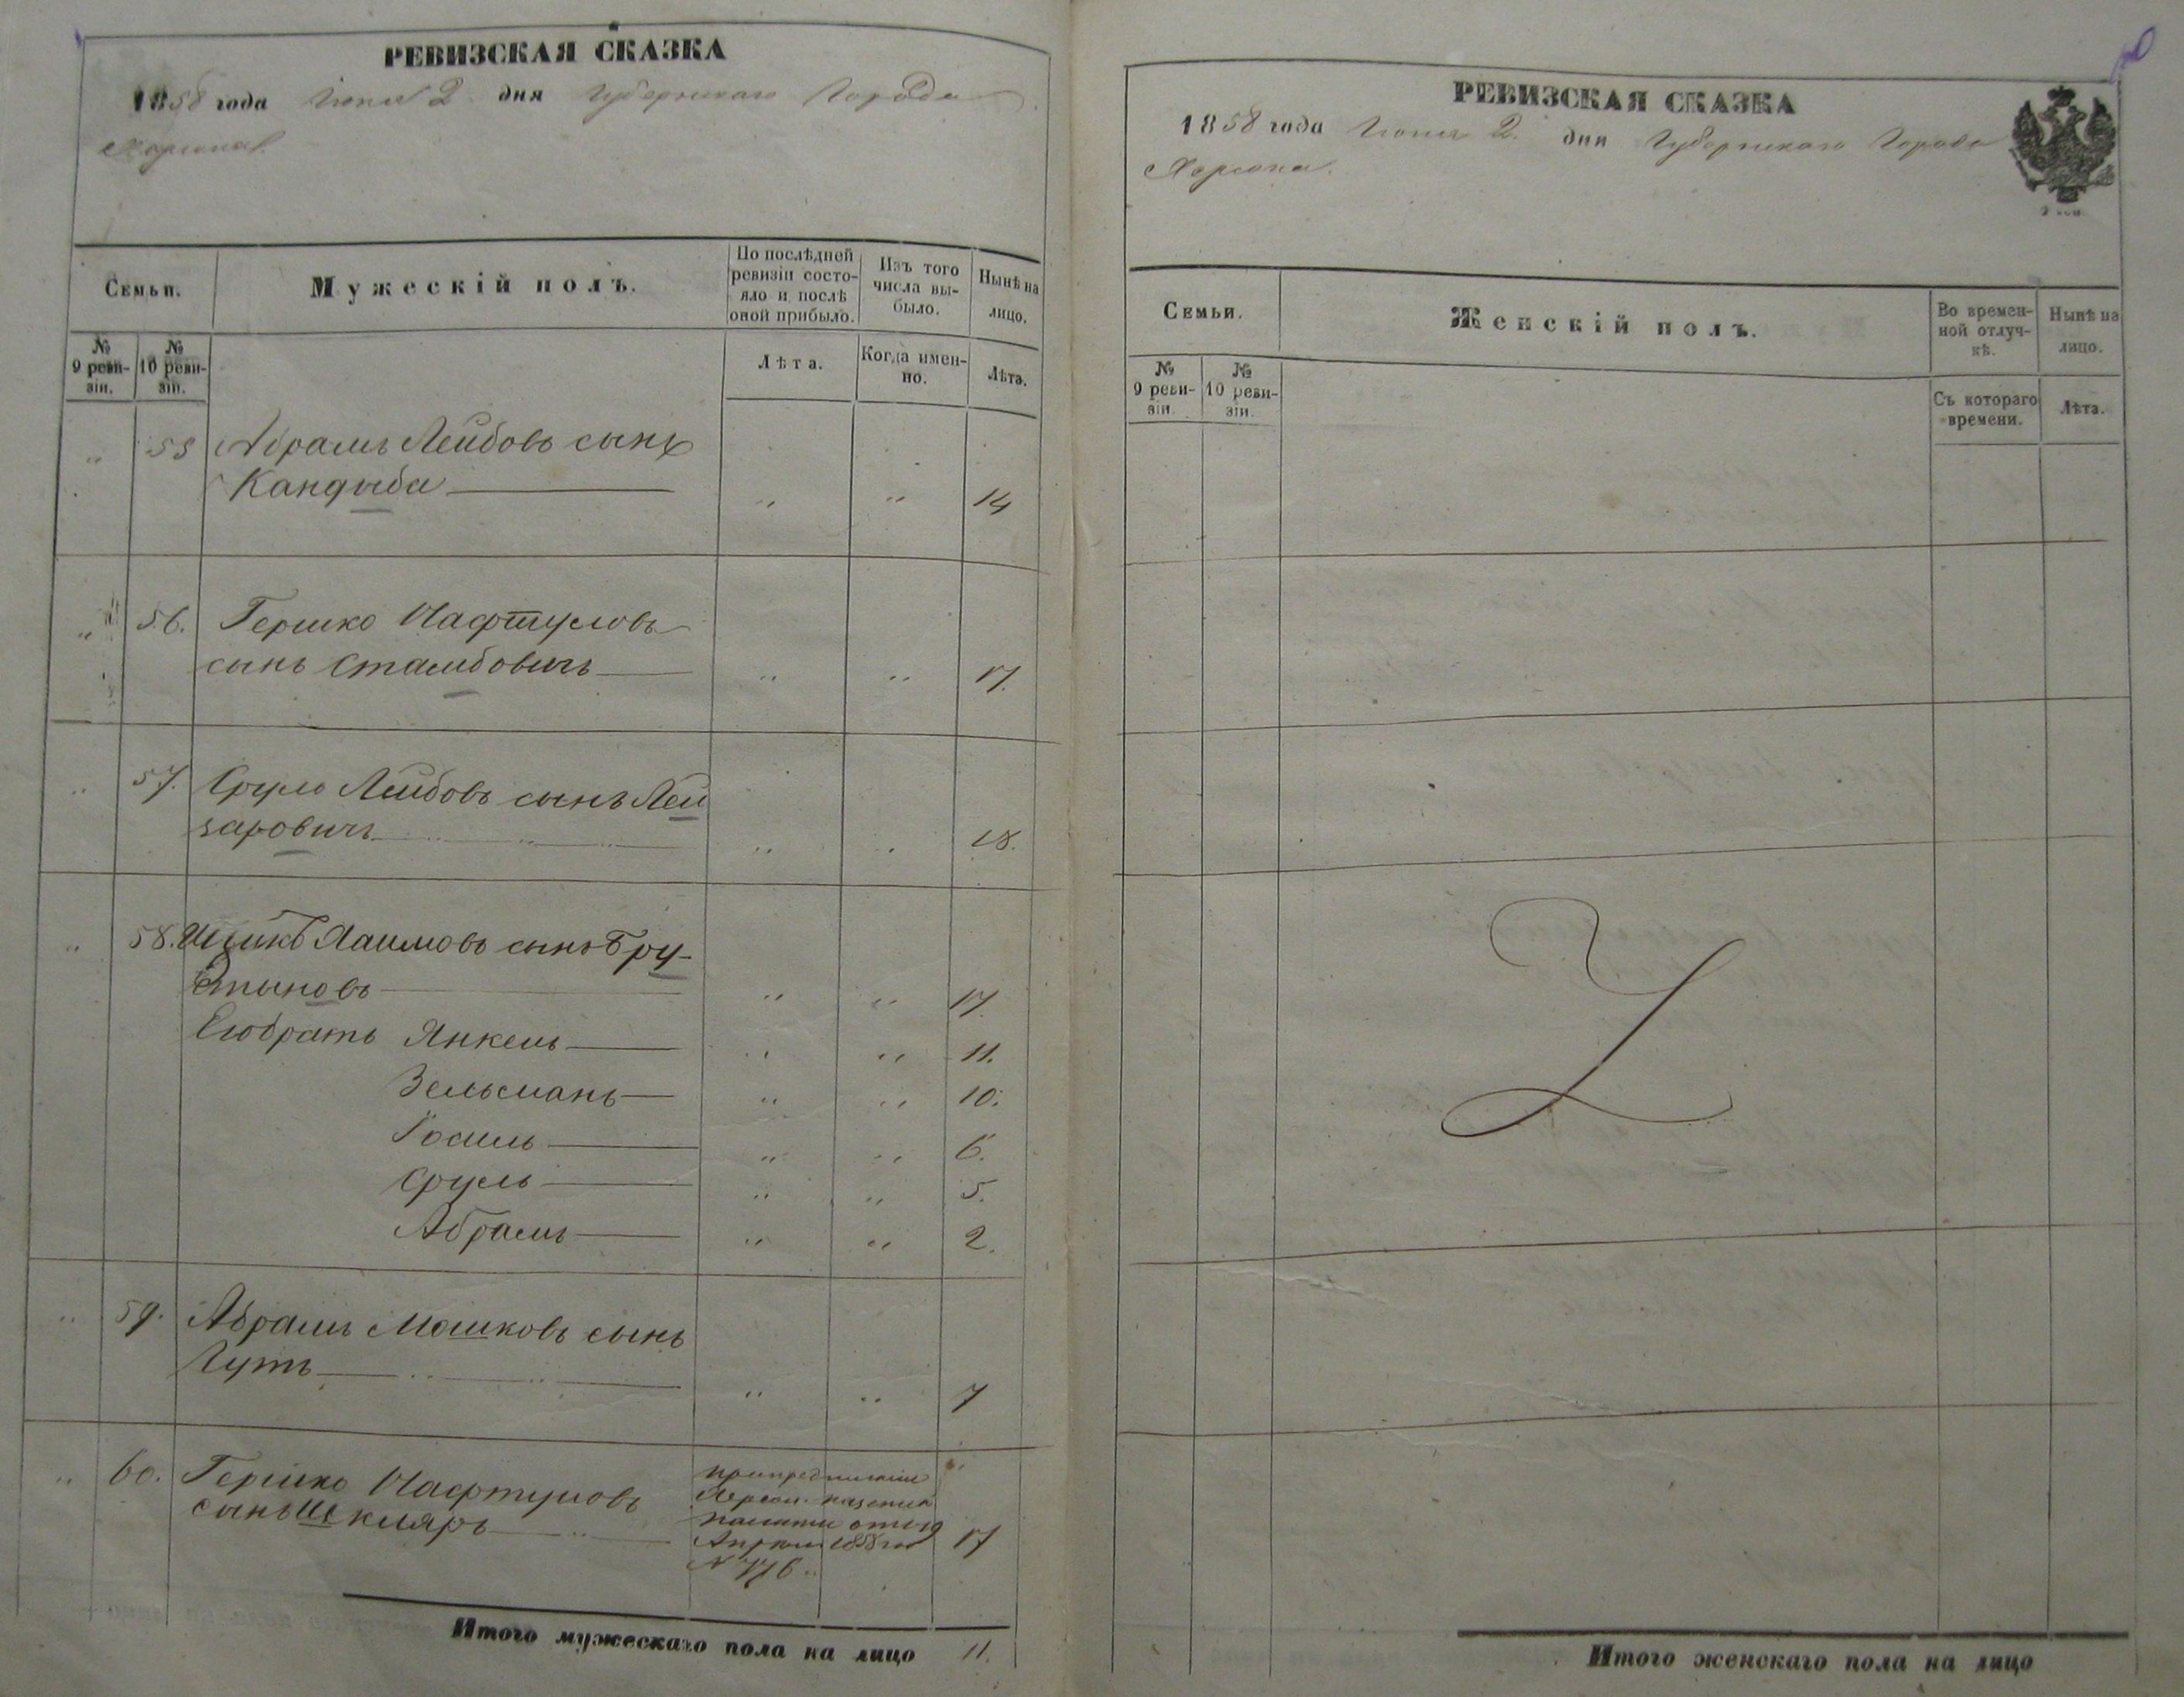 РЕВИЗСКАЯ СКАЗКА
1858 года Іюня 2 дня Губернскаго Города
Херсона.
Семьи.
Мужескій полъ.
По послѣдней ревизіи состояло и послѣ оной прибыло.
Изъ того числа выбыло.
Нынѣ на лицо.
№ 9 ревизіи.
№ 10 ревизіи.
Лѣта.
Когда именно.
Лѣта.
" 55 Абрамъ Лейбовъ сынъ
Кандыба " " 14
" 56. Гершко Нафтуловъ
сынъ Стамбовичъ " " 17.
" 57. Сруло Лейбовъ сынъ Лей
заровичъ " " 18.
" 58. Ицикъ Хаимовъ сынъ Бру-
" " 17.
Его братъ Янкель " " 11.
Зельманъ " " 10.
Іосиль " " 6.
Сруль " " 5.
Абрамъ " " 2.
" 59. Абрамъ Мошковъ сынъ
Гутъ " " 7
" 60. Гершко Нафтуловъ
сынъ Шкляръ 17
при предписаніи
Херсон. казенной
палаты отъ 19
Апрѣля 1858 год
№ 776
Итого мужескаго пола на лицо 11.
РЕВИЗСКАЯ СКАЗКА
1858 года Іюня 2. дня Губернскаго Города
Херсона.
Семьи.
Женскій полъ.
Во временной отлучкѣ.
Нынѣ на лицо.
№ 9 ревизіи.
№ 10 ревизіи.
Съ котораго времени.
Лѣта.
Итого женскаго пола на лицо